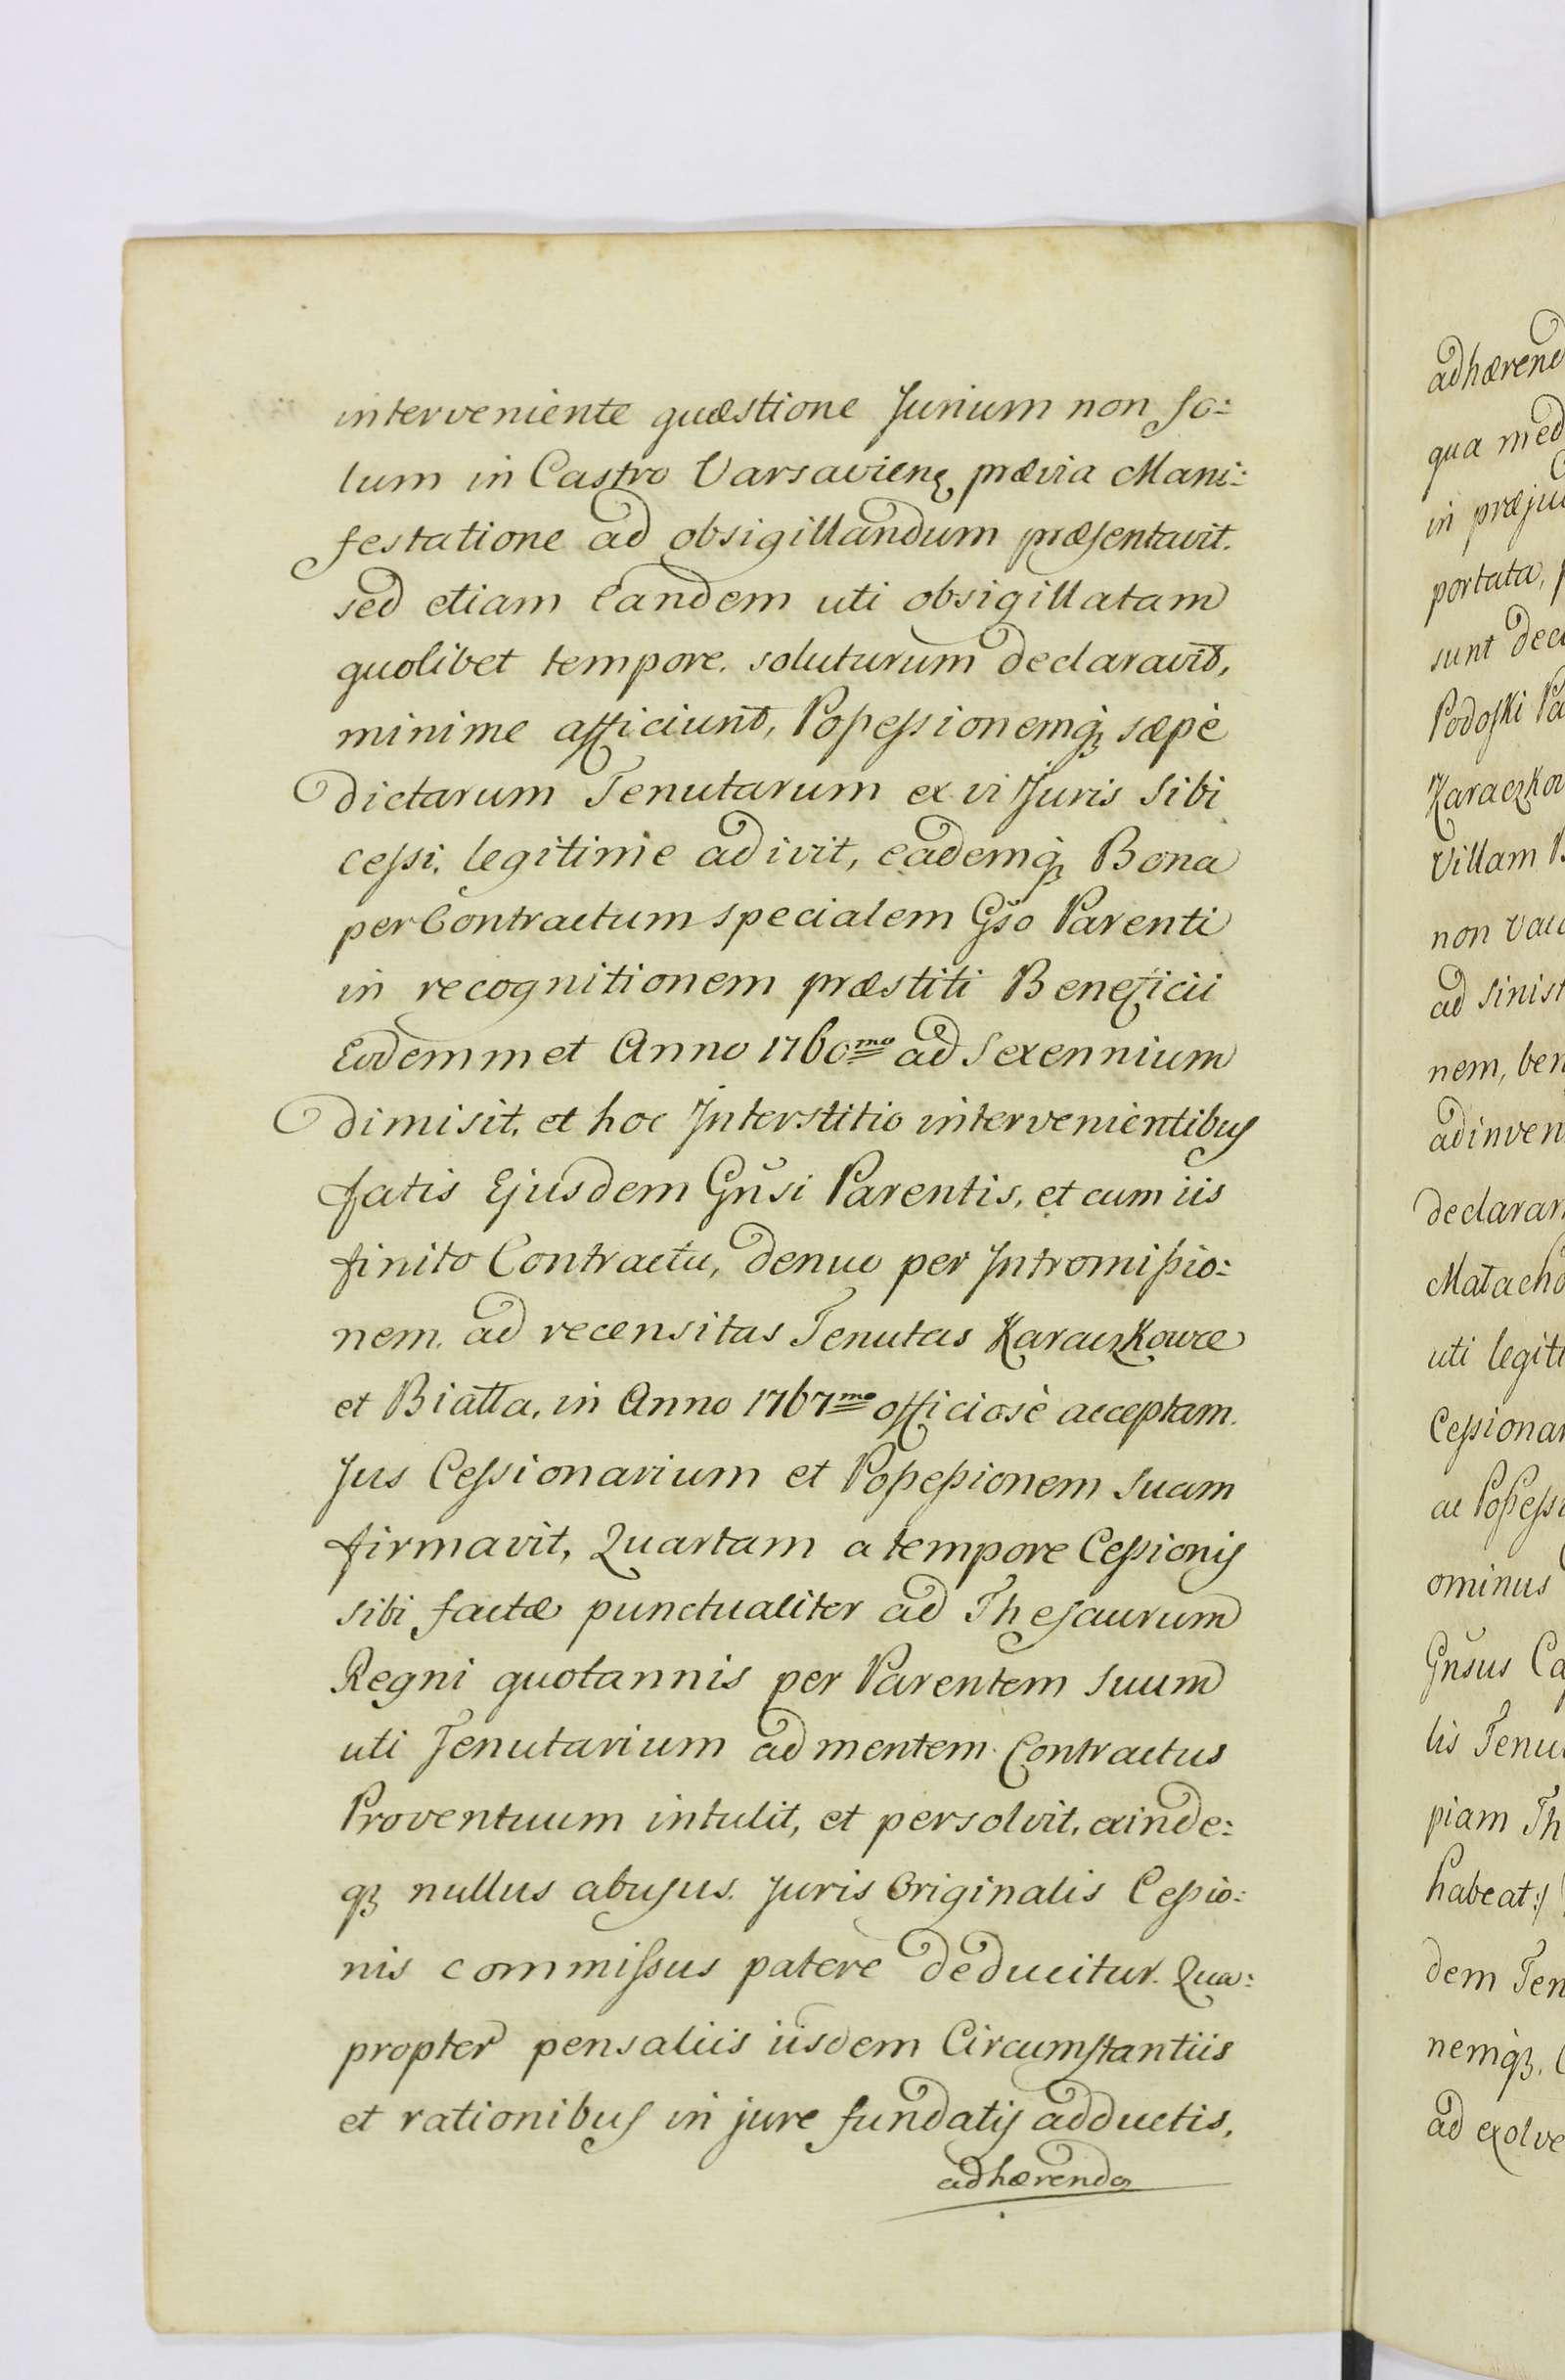 interveniente quæstione Jurium non so:
lum in Castro Varsavienę prævia Mani:
festatione ad obsigillandum præsentavit.
sed etiam Eandem uti obsigillatam
quolibet tempore. soluturum declaravit,
minime afficiunt, Possessionemq̃ sæpè
dictarum Tenutarum ex vi Juris Sibi
cessi, legitime adivit, eademq̃ Bona
per Contractum specialem Gso Parenti
in recognitionem præstiti Beneficii
Eodemmet Anno 1760mo ad Sexennium
dimisit, et hoc Interstitio intervenientibus
fatis Ejusdem Gnsi Parentis, et cum iis
finito Contractu, denuo per Intromissio:
nem. ad recensitas Tenutas Karaczkowce
et Biatta, in Anno 1767mo officiosè acceptam.
Jus Cessionarium et Possessionem Suam
firmavit, Quartam a tempore Cessionis
sibi factæ punctualiter ad Thesaurum
Regni quotannis per Parentem Suum
uti Tenutarium ad mentem Contractus
Proventuum intulit, et persolvit, exinde:
qȝ nullus abusus. Juris Originalis Cessio:
nis commissus patere deducitur. Qua:
propter pensaliis iisdem Circumstantiis
et rationibus in jure fundatis adductis,
adhærendo
adhærend
qua med
in præju
portata,
sunt dec
Podoski Pa
Karaczkow
Villam B
non vac
ad sinist
nem, ben
adinven
declaran
Matacho
uti legiti
Cessionar
ac Possessi
ominus
Gnsus Ca
lis Tenu
piam Th
habeat:/
dem Ten
nemqȝ.
ad exolve